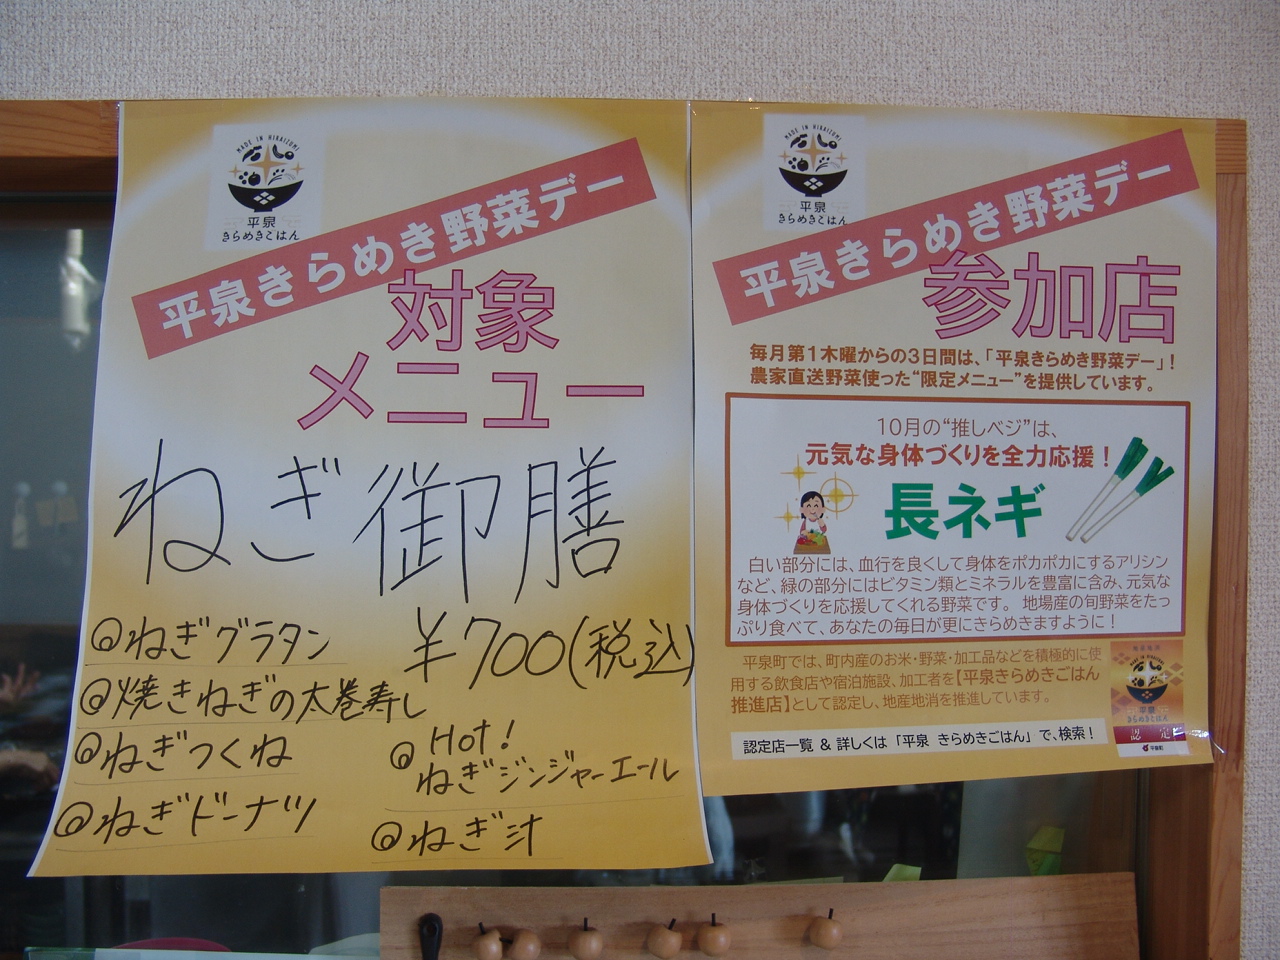 MADE IN HIRAIZUMI
平泉
きらめきごはん
平泉きらめき野菜デー
対象
メニュー
ねぎ御膳
¥700(税込)
@ねぎグラタン
@焼きねぎの太巻寿し
@ねぎつくね
@ねぎドーナツ
@Hot!
ねぎジンジャーエール
@ねぎ汁
MADE IN HIRAIZUMI
平泉
きらめきごはん
平泉きらめき野菜デー
参加店
毎月第1木曜からの3日間は、「平泉きらめき野菜デー」!
農家直送野菜使った“限定メニュー”を提供しています。
10月の“推しベジ”は、
元気な身体づくりを全力応援!
長ネギ
白い部分には、血行を良くして身体をポカポカにするアリシン
など、緑の部分にはビタミン類とミネラルを豊富に含み、元気な
身体づくりを応援してくれる野菜です。 地場産の旬野菜をたっ
ぷり食べて、あなたの毎日が更にきらめきますように!
平泉町では、町内産のお米・野菜・加工品などを積極的に使
用する飲食店や宿泊施設、加工者を【平泉きらめきごはん
推進店】として認定し、地産地消を推進しています。
認定店一覧 & 詳しくは「平泉 きらめきごはん」で、検索!
平泉
きらめきごはん
認定
平泉町